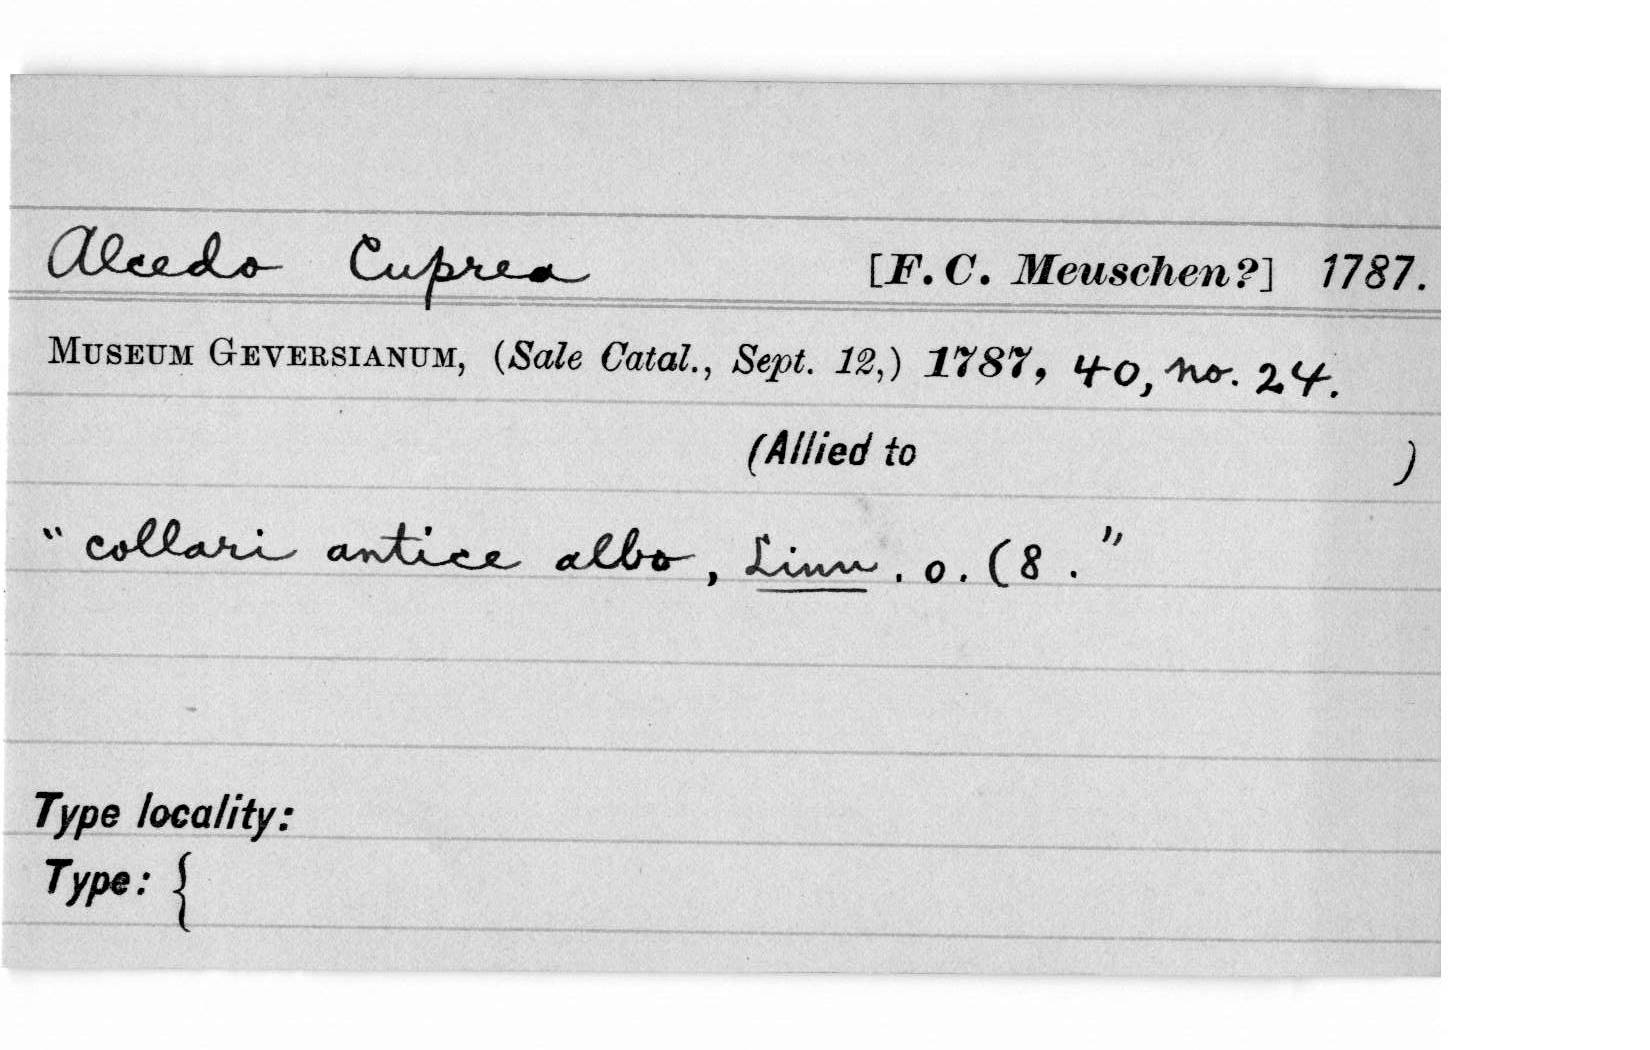 Alcedo Cuprea [F. C. Meuschen?] 1787.
MUSEUM GEVERSIANUM, (Sale Catal., Sept. 12,) 1787, 40, no. 24.
(Allied to )
" collari antice albo, Linn. o. (8 . "
Type locality:
Type: {